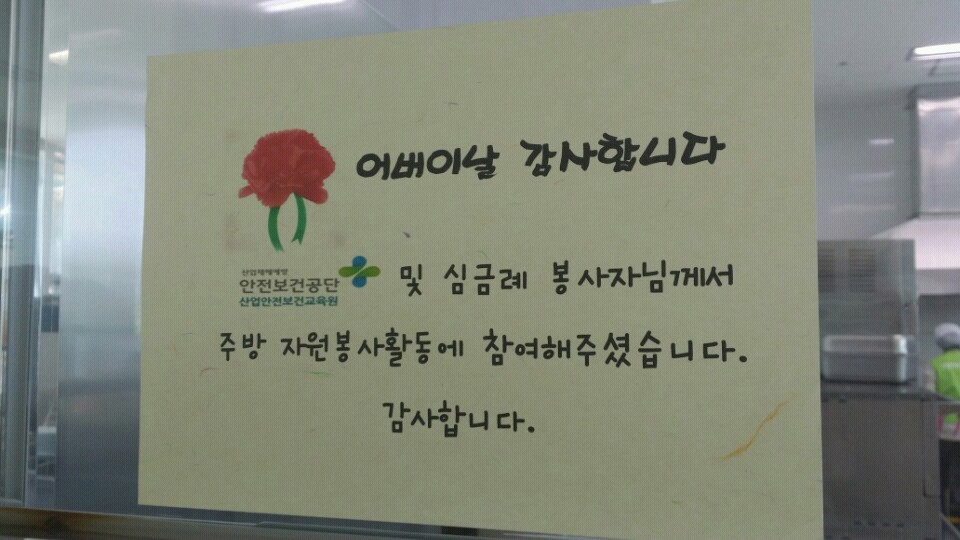 어버이날 감사합니다
산업재해예방
안전보건공단
산업안전보건교육원
및 심금례 봉사자님께서
주방 자원봉사활동에 참여해주셨습니다.
감사합니다.